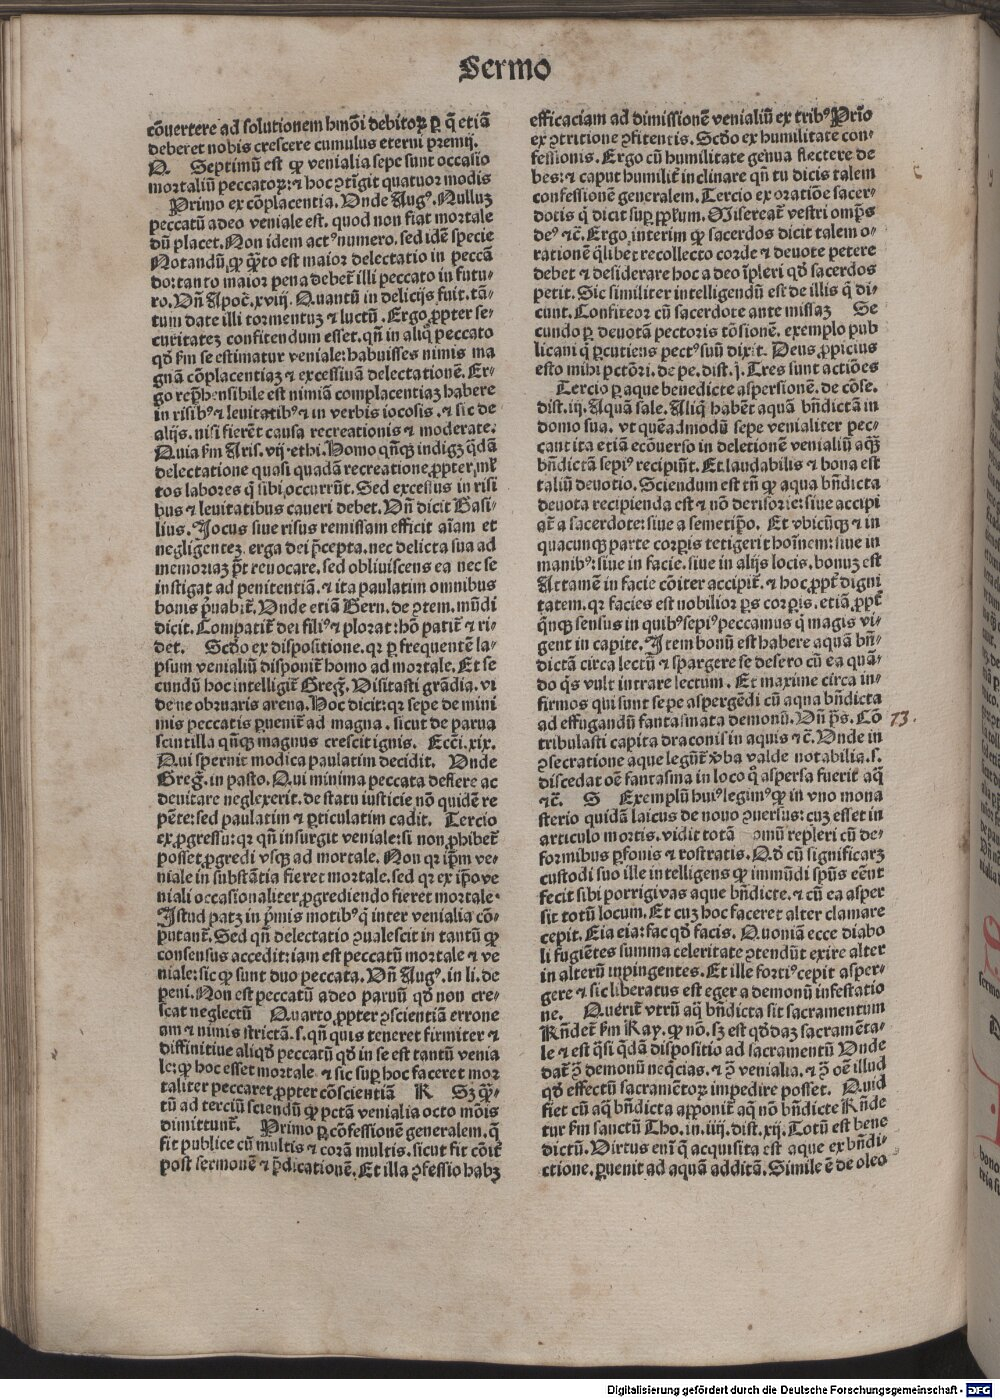 Sermo
cōuertere ad solutionem hmōi debitoꝝ ꝑ q̄ etiā
deberet nobis crescere cumulus eterni premij.
Q. Septimū est ꝙ venialia sepe sunt occasio
mortaliū peccatoꝝ: ⁊ hoc ꝯtīgit quatuor modis
Primo ex cōplacentia. Unde Augꝰ. Nulluz
peccatū adeo veniale est. quod non fiat mortale
dū placet. Non idem actꝰ numero. sed idē specie
Notandū ꝙ q̄to est maior delectatio in peccā
do: tanto maior pena debet̄ illi peccato in futu-
ro. Uñ Apoc̄. xviij. Quantū in delicijs fuit. tā-
tum date illi tormentuꝫ ⁊ luctū. Ergo ꝓpter se-
curitatez confitendum esset. qñ in aliq̊ peccato
qd̄ fm se estimatur veniale: habuisses nimis ma
gnā cōplacentiaꝫ ⁊ excessiuā delectationē. Er-
go rep̄hensibile est nimiā complacentiaꝫ habere
in risibꝰ ⁊ leuitatibꝰ ⁊ in verbis iocosis. ⁊ sic de
alijs. nisi fierēt causa recreationis ⁊ moderate.
Quia fm Aris. vij. ethi. Homo qn̄qꝫ indigꝫ q̄dā
delectatione quasi quadā recreatione ꝓpter ml̄
tos labores q̄ sibi occurrūt. Sed excessus in risi
bus ⁊ leuitatibus caueri debet. Uñ dicit Basi-
lius. Jocus siue risus remissam efficit aīam et
negligentez erga dei p̄cepta. nec delicta sua ad
memoriaꝫ p̄t reuocare. sed obliuiscens ea nec se
instigat ad penitentiā. ⁊ ita paulatim omnibus
bonis p̄uabit̄. Unde etiā Bern. de ꝯtem. mūdi
dicit. Compatit̄ dei filiꝰ ⁊ plorat: hō patit̄ ⁊ ri-
det. Scdo ex dispositione. qꝛ ꝑ frequentē la-
psum venialiū disponit̄ homo ad mortale. Et se
cundū hoc intelligit̄ Greg̃. Uisitasti grādia. vi
de ne obruaris arena. Hoc dicit: qꝛ sepe de mini
mis peccatis ꝑuenit̄ ad magna. sicut de parua
scintilla qn̄qꝫ magnus crescit ignis. Ecci. xix.
Qui spernit modica paulatim decidit. Unde
Greg̃. in pasto. Qui minima peccata deflere ac
deuitare neglexerit. de statu iusticie nō quidē re
pēte: sed paulatim ⁊ ꝑticulatim cadit. Tercio
ex ꝓgressu: qꝛ qn̄ insurgit veniale: si non ꝓhibet̄
posset ꝓgredi vsqꝫ ad mortale. Non qꝛ ip̄m ve-
niale in substātia fieret mortale. sed qꝛ ex ip̄o ve
niali occasionaliter ꝓgrediendo fieret mortale.
Istud patꝫ in p̄mis motibꝰ q̄ inter venialia cō-
putant̄. Sed qn̄ delectatio ꝯualescit in tantū ꝙ
consensus accedit: iam est peccatū mortale ⁊ ve
niale: sic ꝙ sunt duo peccata. Uñ Augꝰ. in li. de
peni. Non est peccatū adeo paruū qd̄ non cre-
scat neglectū Quarto ꝓpter ꝯscientiā errone
am ⁊ nimis strictā. s. qn̄ quis teneret firmiter ⁊
diffinitiue aliqd̄ peccatū qd̄ in se est tantū venia
le: ꝙ hoc esset mortale ⁊ sic suꝑ hoc faceret mor
taliter peccaret ꝓpter cōscientiā R Sꝫ q̄-
tū ad terciū sciendū ꝙ pctā venialia octo mōis
dimittunt̄. Primo ꝑ cōfessionē generalem. q̄
fit publice cū multis ⁊ corā multis. sicut fit cōit̄
post sermonē ⁊ p̄dicationē. Et illa ꝯfessio habꝫ
efficaciam ad dimissionē venialiū ex tribꝰ Prīo
ex ꝯtritione ꝯfitentis. Scdo ex humilitate con-
fessionis. Ergo cū humilitate genua flectere de
bes: ⁊ caput humilit̄ inclinare qn̄ tu dicis talem
confessionē generalem. Tercio ex oratiōe sacer-
dotis q̄ dicit suꝑ ppl̄um. Misereat̄ vestri omp̄s
deꝰ ⁊c̄. Ergo interim ꝙ sacerdos dicit talem o-
rationē q̄libet recollecto corde ⁊ deuote petere
debet ⁊ desiderare hoc a deo īpleri qd̄ sacerdos
petit. Sic similiter intelligendū est de illis q̄ di-
cunt. Confiteor cū sacerdote ante missaꝫ Se
cundo ꝑ deuotā pectoris tōsionē. exemplo pub
licani q̄ ꝑcutiens pectꝰ suū dixit. Deus ꝓpicius
esto mihi pctōri. de pe. dist. j. Tres sunt actiōes
Tercio ꝑ aque benedicte aspersionē. de cōse.
dist. iij. Aquā sale. Aliq̄ habēt aquā bn̄dictā in
domo sua. vt quēadmodū sepe venialiter pec-
cant ita etiā ecōuerso in deletionē venialiū aq̄ꝫ
bn̄dictā sepiꝰ recipiūt. Et laudabilis ⁊ bona est
taliū deuotio. Sciendum est tn̄ ꝙ aqua bn̄dicta
deuota recipienda est ⁊ nō derisorie: siue accipi
at̄ a sacerdote: siue a semetip̄o. Et vbicūqꝫ ⁊ in
quacunqꝫ parte corpis tetigerit hoīnem: siue in
manibꝰ: siue in facie. siue in alijs locis. bonuꝫ est
Attamē in facie cōiter accipit̄. ⁊ hoc ꝓpt̄ digni
tatem. qꝛ facies est nobilior ꝑs corꝑis. etiā ꝓpt̄
qn̄qꝫ sensus in quibꝰ sepiꝰ peccamus q̄ magis vi-
gent in capite. Item bonū est habere aquā bn̄-
dictā circa lectū ⁊ spargere se desero cū ea quā-
do q̄s vult intrare lectum. Et maxime circa in-
firmos qui sunt sepe aspergēdi cū aqua bn̄dicta
ad effugandū fantasmata demonū. Uñ p̄s. Cō
tribulasti capita draconis in aquis ⁊c̄. Unde in
ꝯsecratione aque legūt̄ v̄ba valde notabilia. s.
discedat oē fantasma in loco q̊ aspersa fuerit aq̄
⁊c̄. S Exemplū huiꝰ legimꝰ ꝙ in vno mona
sterio quidā laicus de nouo ꝯuersus: cuꝫ esset in
articulo mortis. vidit totā omū repleri cū de-
formibus ꝑsonis ⁊ rostratis. Qd̄ cū significarꝫ
custodi suo ille intelligens ꝙ immūdi spūs eēnt
fecit sibi porrigi vas aque bn̄dicte. ⁊ cū ea asper
sit totū locum. Et cuꝫ hoc faceret alter clamare
cepit. Eia eia: fac qd̄ facis. Quoniā ecce diabo
li fugiētes summa celeritate ꝯtendūt exire alter
in alterū inpingentes. Et ille fortiꝰ cepit asper-
gere ⁊ sic liberatus est eger a demonū infestatio
ne. Querit̄ vtrū aq̄ bn̄dicta sit sacramentum
Rn̄det̄ fm Ray. ꝙ nō. sꝫ est qd̄daꝫ sacramēta-
le ⁊ est q̄si q̄dā dispositio ad sacramentū Unde
dat̄ ꝯ̄ demonū neq̄cias. ⁊ ꝯ̄ venialia. ⁊ ꝯ̄ oē illud
qd̄ effectū sacramētoꝝ impedire posset. Quid
fiet cū aq̄ bn̄dicta apponit̄ aq̄ nō bn̄dicte Rn̄de
tur fm sanctū Tho. in. iiij. dist. xij. Totū est bene
dictū. Uirtus eni q̄ acquisita est aque ex bn̄di-
ctione. ꝑuenit ad aquā additā. Simile ē de oleo
73.
Digitalisierung gefördert durch die Deutsche Forschungsgemeinschaft - DFG